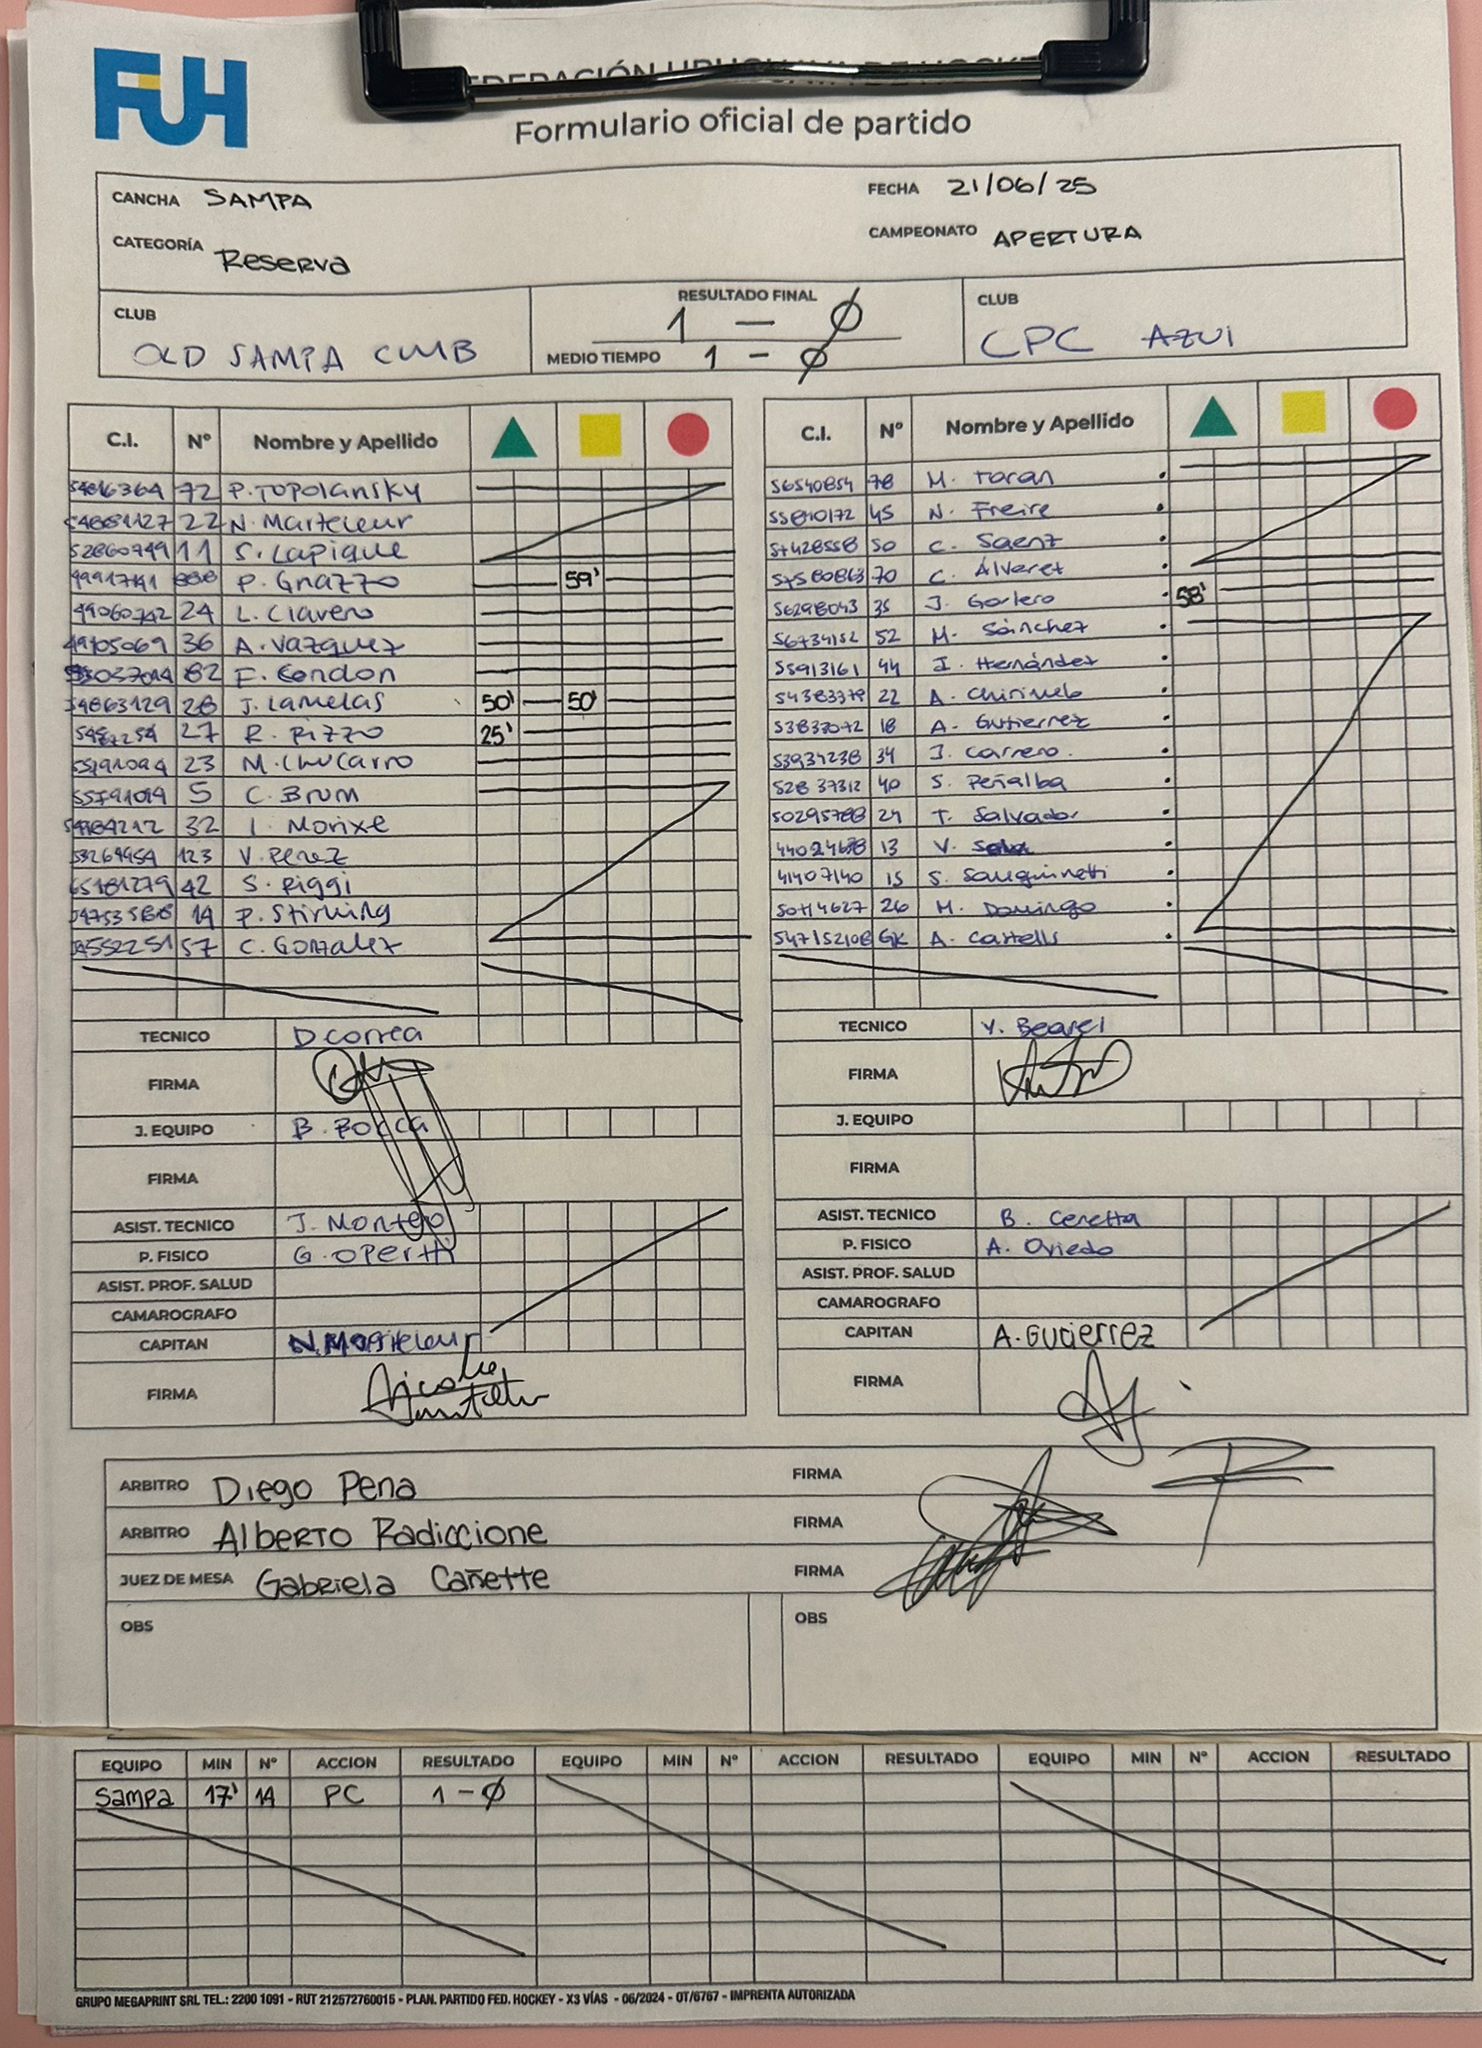 FUH
Formulario oficial de partido
CANCHA SAMPA
FECHA 21/06/25
CATEGORÍA Reserva
CAMPEONATO APERTURA
CLUB OLD SAMPA CLUB
RESULTADO FINAL 1 - Ø
MEDIO TIEMPO 1 - Ø
CLUB CPC AZUL
C.I. Nº Nombre y Apellido
72 P. TOPOLANSKY
22 N. Marteleur
52860749 11 S. Lapique
P. Gnazzo 59'
24 L. Clavero
49105069 36 A. Vazquez
82 F. Condon
54863129 28 J. Lamelas 50' 50'
27 R. Rizzo 25'
23 M. Chucarro
5 C. Brum
32 I. Morixe
123 V. Perez
42 S. Riggi
14 P. Stirling
57 C. Gonzalez
TECNICO D. Correa
FIRMA
J. EQUIPO B. Bocca
FIRMA
ASIST. TECNICO J. Montero
P. FISICO G. Opertti
ASIST. PROF. SALUD
CAMAROGRAFO
CAPITAN N. Marteleur
FIRMA
C.I. Nº Nombre y Apellido
56540854 78 M. Toran
55840172 45 N. Freire
50 C. Saenz
70 C. Álverez
56298043 35 J. Gorlero 58'
56734152 52 M. Sánchez
55913161 44 I. Hernández
54383379 22 A.
53833072 18 A. Gutierrez
53934238 34 J. Carrero.
52837312 40 S. Peñalba
50295788 24 T. Salvador
13 V.
41407140 15 S. Sanguinetti
26 M. Domingo
GK A. Castells
TECNICO
FIRMA
J. EQUIPO
FIRMA
ASIST. TECNICO B. Ceretta
P. FISICO A. Oviedo
ASIST. PROF. SALUD
CAMAROGRAFO
CAPITAN A. Gutierrez
FIRMA
ARBITRO Diego Pena FIRMA
ARBITRO Alberto Radiccione FIRMA
JUEZ DE MESA Gabriela Cañette FIRMA
OBS OBS
EQUIPO MIN Nº ACCION RESULTADO EQUIPO MIN Nº ACCION RESULTADO EQUIPO MIN Nº ACCION RESULTADO
Sampa 17' 14 PC 1 - Ø
GRUPO MEGAPRINT SRL TEL.: 2200 1091 - RUT 212572760015 - PLAN. PARTIDO FED. HOCKEY - X3 VÍAS - 06/2024 - OT/6767 - IMPRENTA AUTORIZADA